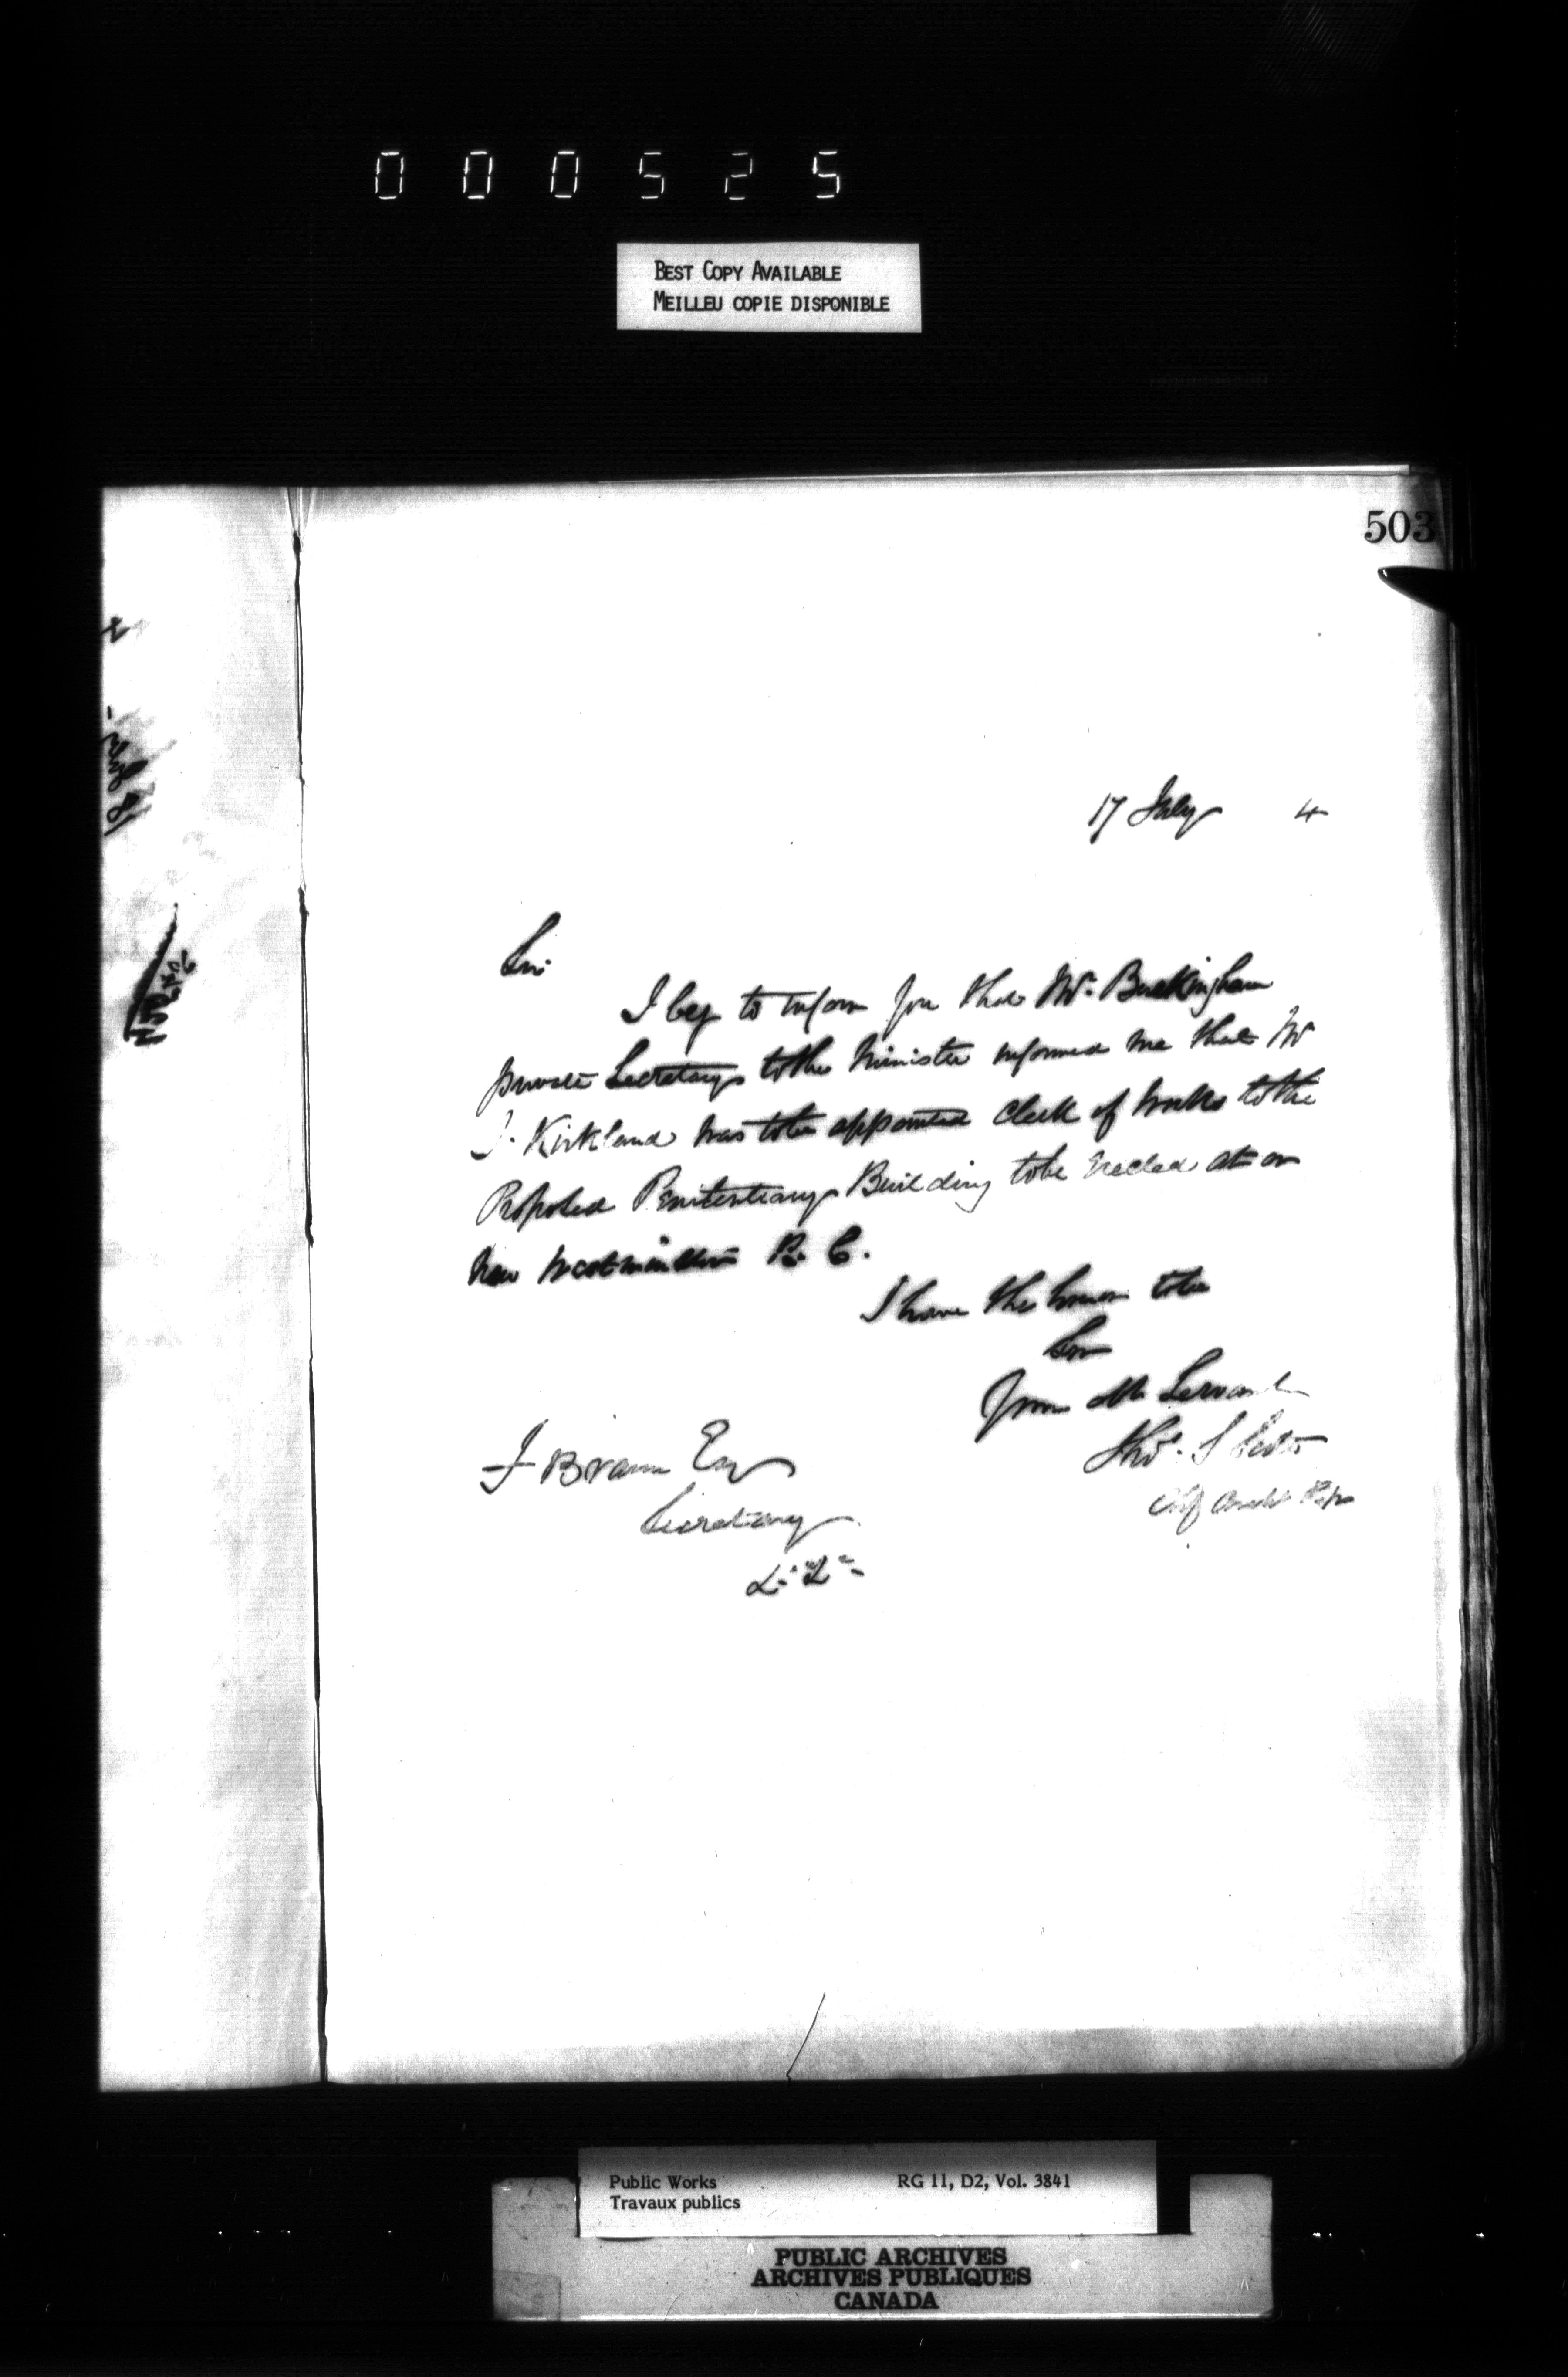 000525
BEST COPY AVAILABLE
MEILLEU COPIE DISPONIBLE
503
17 July 4
Sir
I beg to inform you that Mr. Buckingham
private Secretary to the Minister informed me that Mr
J. Kirkland was to be appointed Clerk of Works to the
Proposed Penitentiary Building to be Erected at or
New Westminster B. C.
I have the honor to be
Sir
Your Ob Servant
Thos. S Scott
Chf Archt
F Braun Esq
Secretary
Public Works RG 11, D2, Vol. 3841
Travaux publics
PUBLIC ARCHIVES
ARCHIVES PUBLIQUES
CANADA